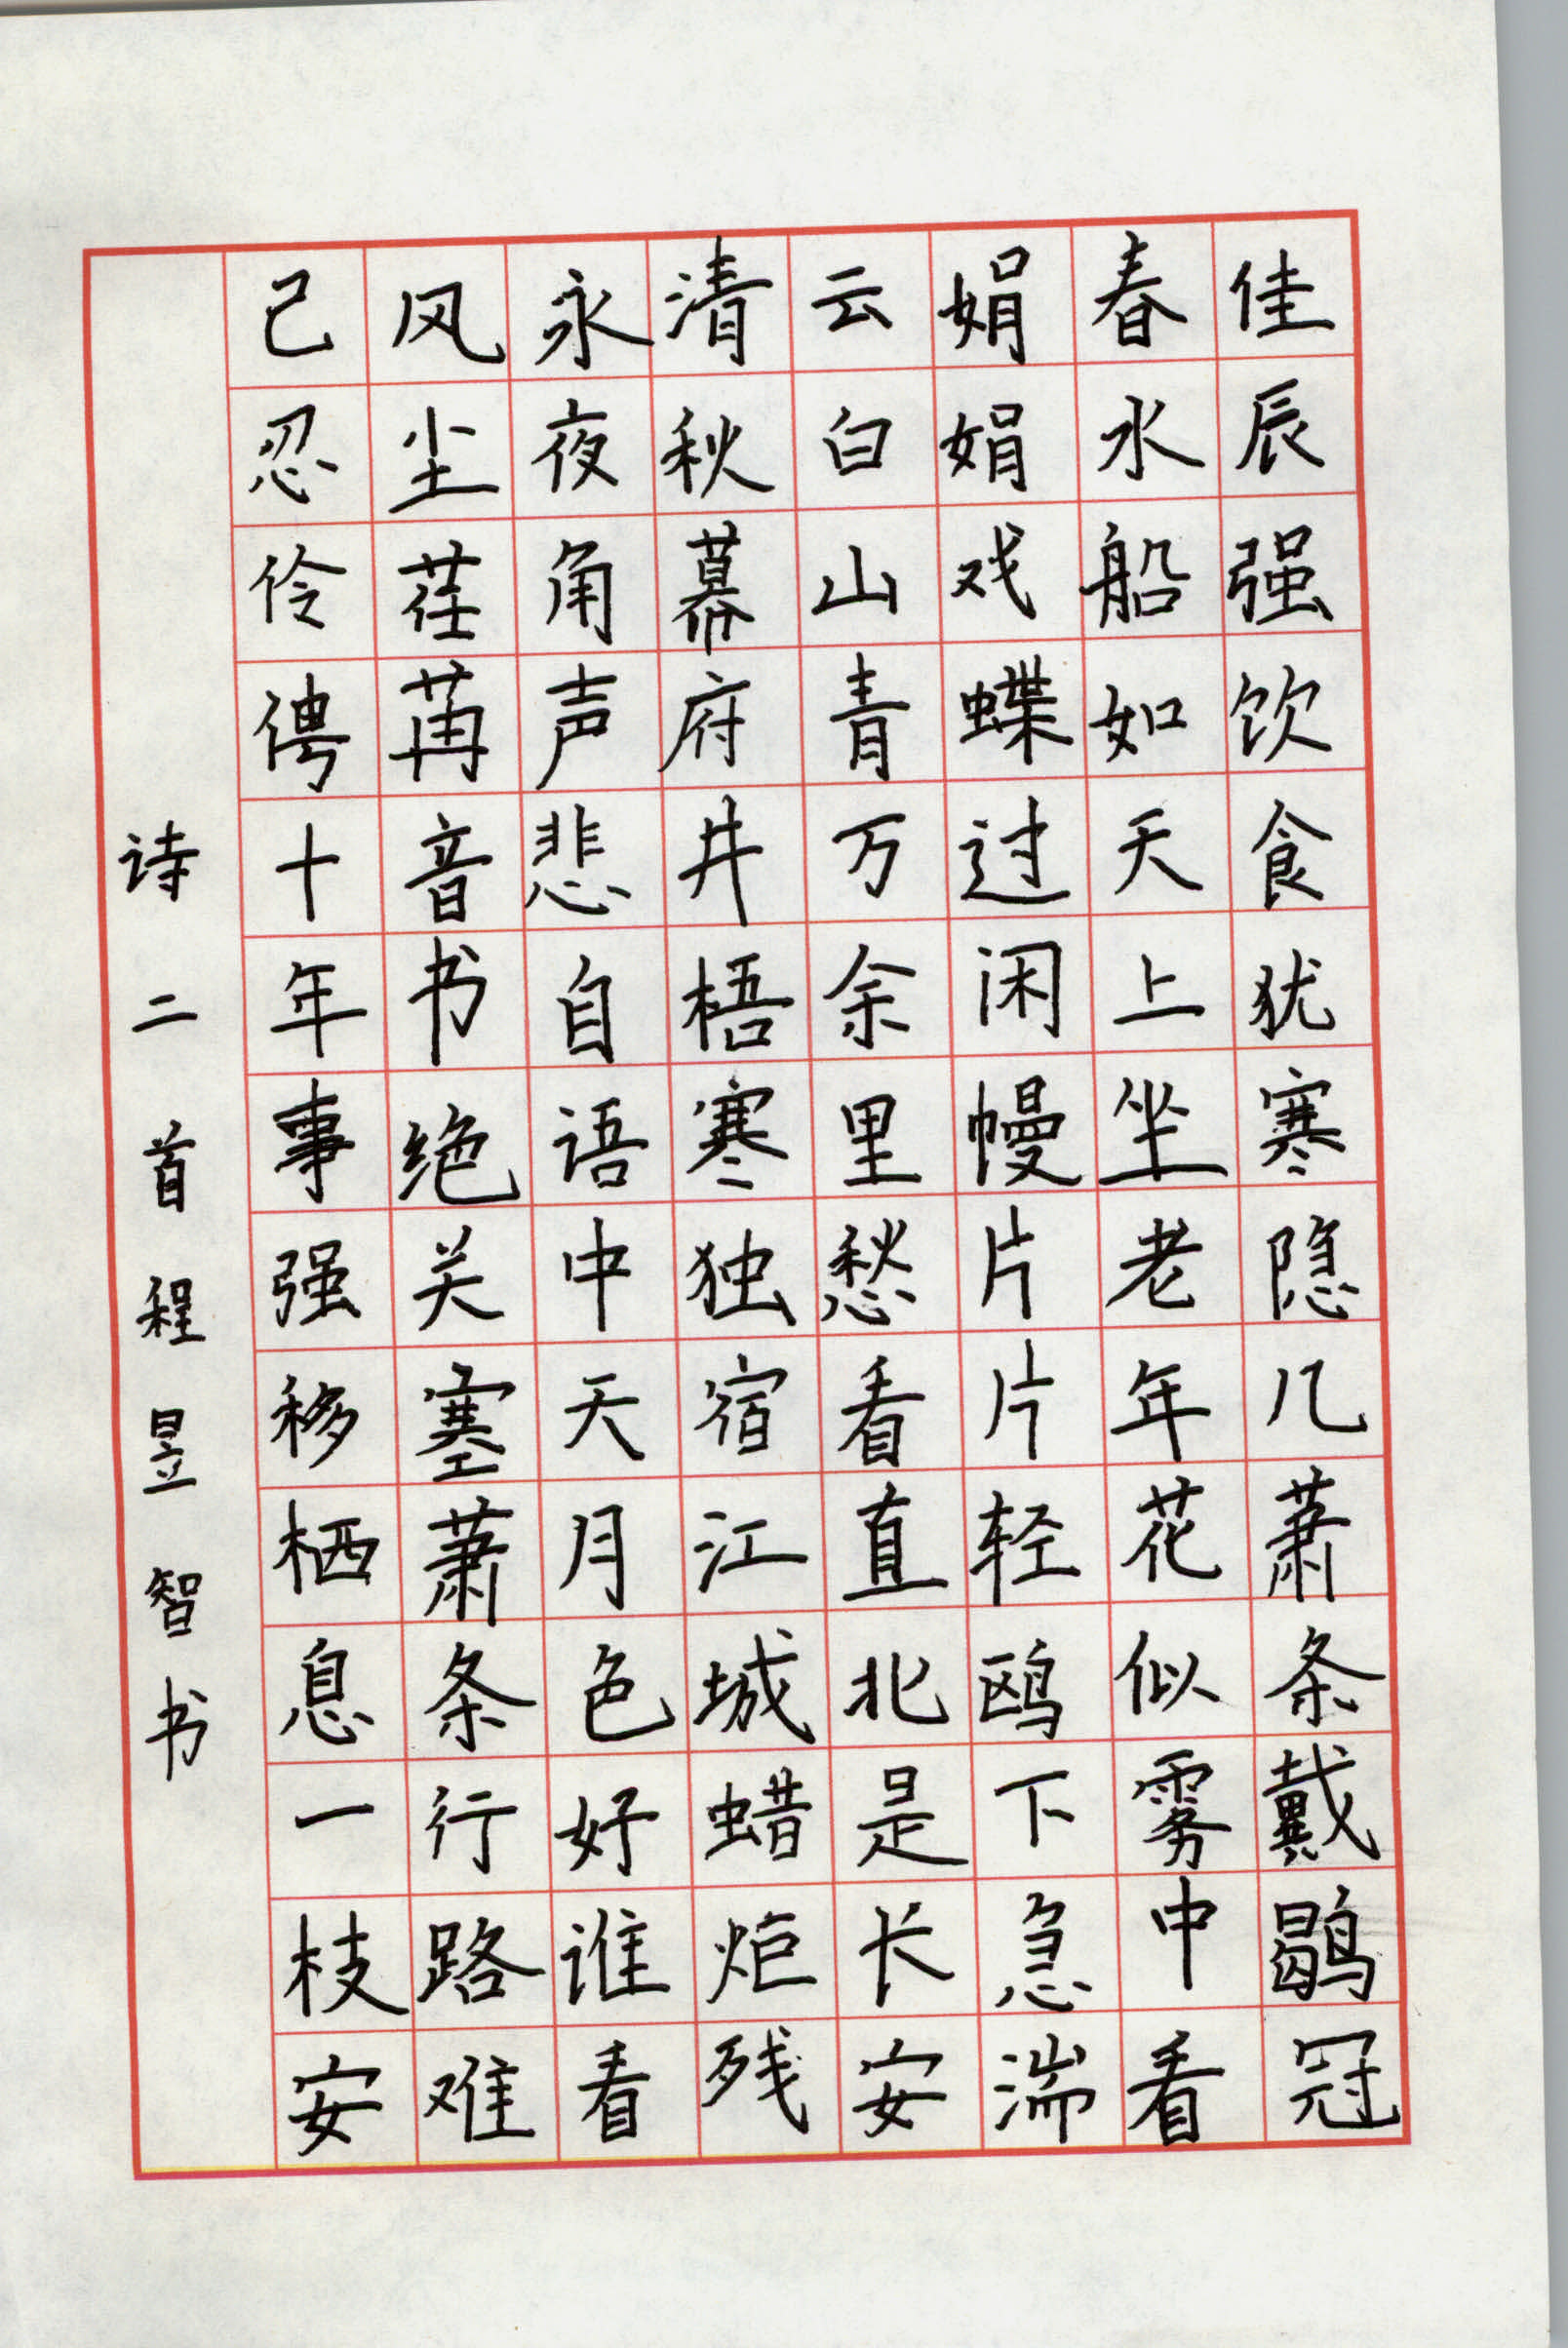 佳辰强饮食犹寒隐几萧条戴鹖冠
春水船如天上坐老年花似雾中看
娟娟戏蝶过闲幔片片轻鸥下急湍
云白山青万余里愁看直北是长安
清秋幕府井梧寒独宿江城蜡炬残
永夜角声悲自语中天月色好谁看
风尘荏苒音书绝关塞萧条行路难
己忍伶俜十年事强移栖息一枝安
诗二首程昱智书